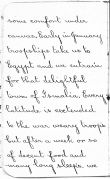 some comfort under
canvas. Early in January
troopships take us to
Egypt and we entrain
for that delightful
town of Ismailia. Every
latitude is extended
to the war weary troops
but after a week or so
of decent food and
many long sleeps we